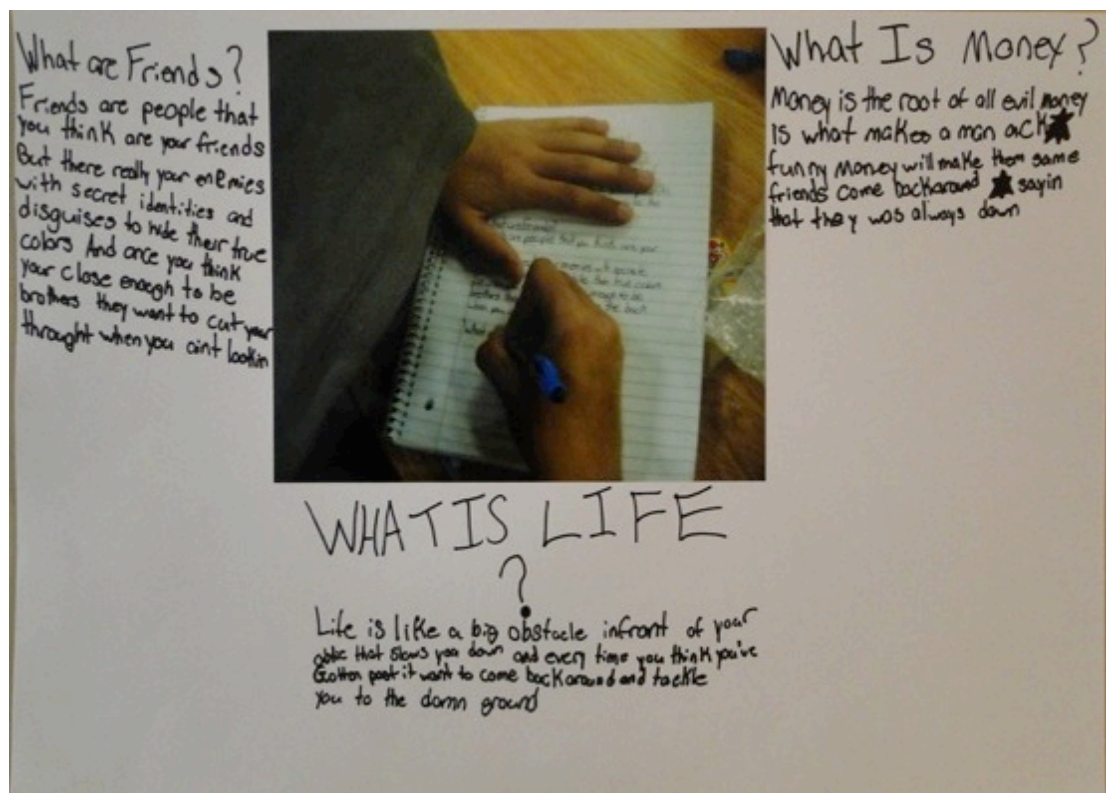 What are Friends?
Friends are people that
you think are your friends
But there really your enemies
with secret identities and
disguises to hide their true
colors And once you think
your close enough to be
brothers they want to cut your
throught when you aint lookin
What Is Money?
Money is the root of all evil money
Is what makes a man ack
funny Money will make them same
friends come backaround sayin
that they was always down
are people that you think are your
WHAT IS LIFE
?
Life is like a big obstacle infront of your
that slows you down and every time you think you've
Gotten past it want to come back around and tackle
you to the damn ground